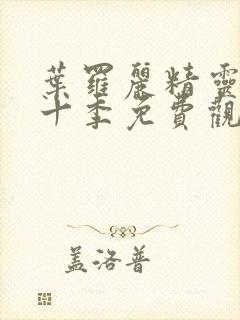 葉羅麗精靈
十季免費觀
盖洛普